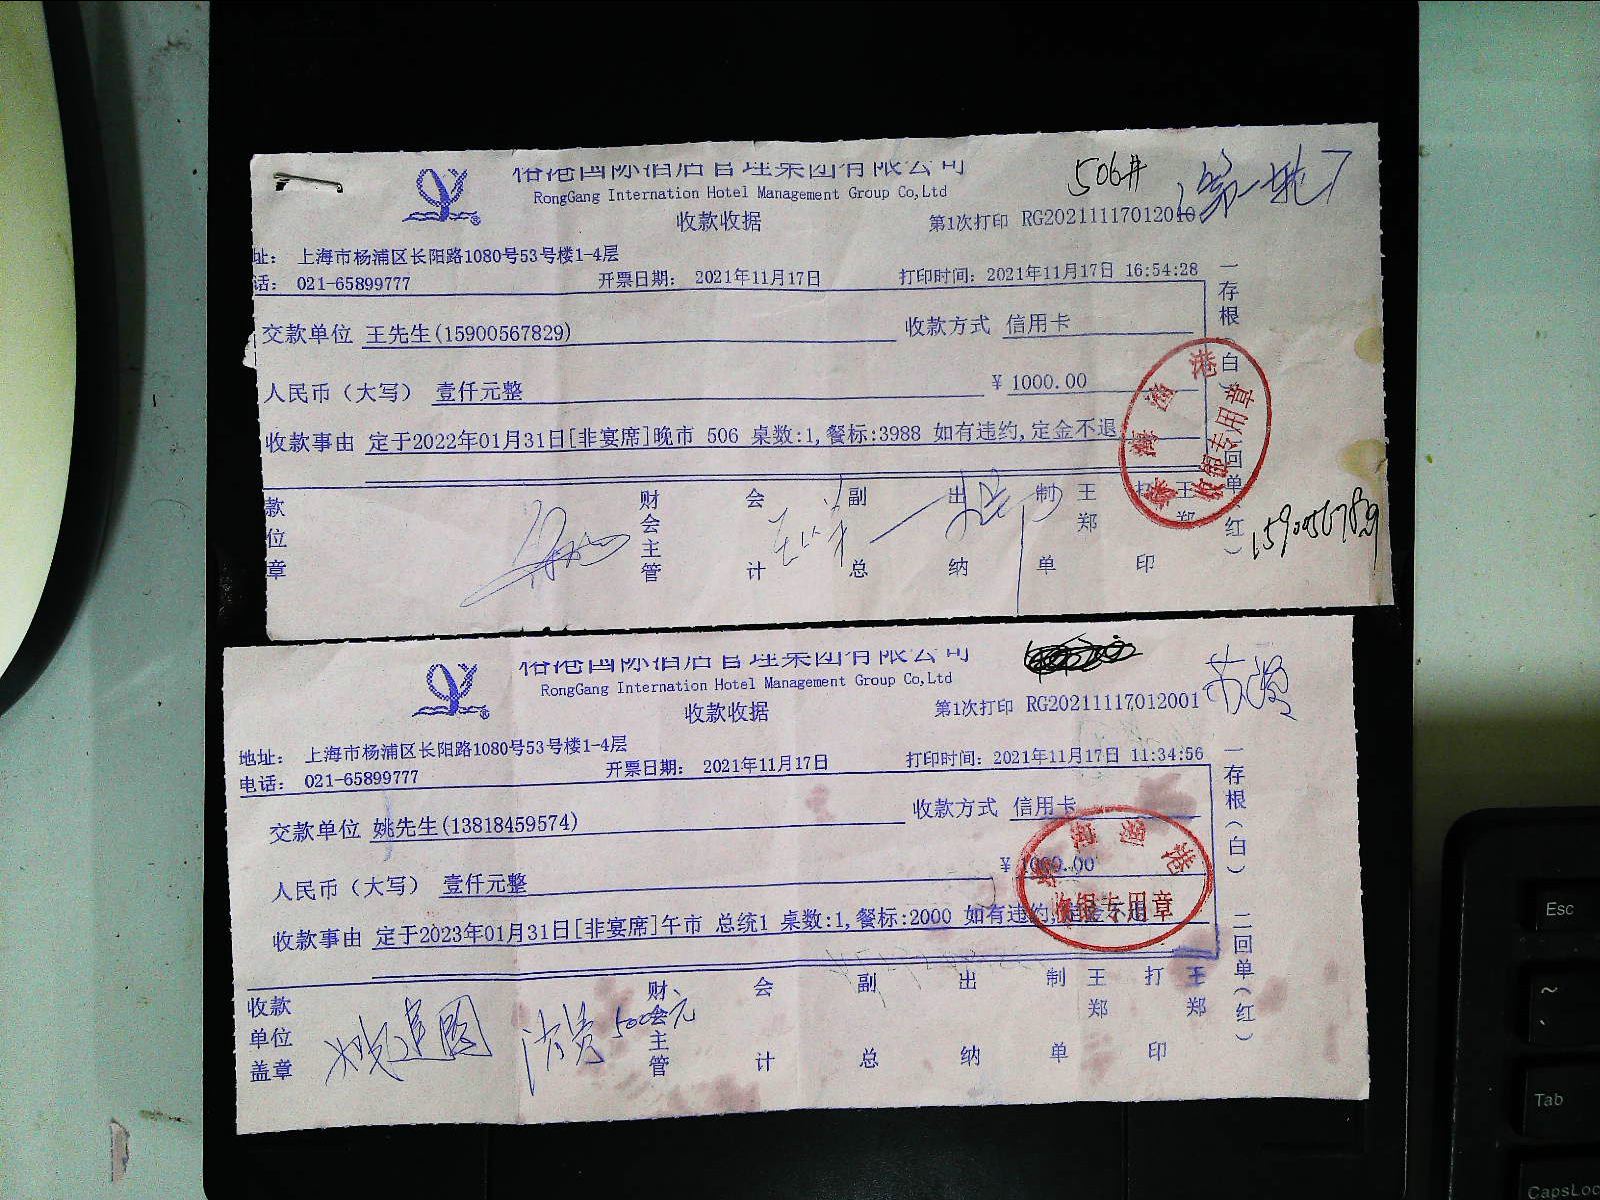 裕港国际酒店管理集团有限公司
RongGang Internation Hotel Management Group Co,Ltd
506#
收款收据
第1次打印 RG20211117012010
址: 上海市杨浦区长阳路1080号53号楼1-4层
话: 021-65899777 开票日期: 2021年11月17日 打印时间: 2021年11月17日 16:54:28
交款单位 王先生(15900567829) 收款方式 信用卡
人民币(大写) 壹仟元整 ¥ 1000.00
收款事由 定于2022年01月31日[非宴席]晚市 506 桌数:1,餐标:3988 如有违约,定金不退
款位章 财会主管 会计 副总 出纳 制单 王郑 打印 王郑
一存根(白) 二回单(红)
收银专用章
15900567829
裕港国际酒店管理集团有限公司
RongGang Internation Hotel Management Group Co,Ltd
收款收据
第1次打印 RG20211117012001
地址: 上海市杨浦区长阳路1080号53号楼1-4层
电话: 021-65899777 开票日期: 2021年11月17日 打印时间: 2021年11月17日 11:34:56
交款单位 姚先生(13818459574) 收款方式 信用卡
人民币(大写) 壹仟元整 ¥ 1000.00
收款事由 定于2023年01月31日[非宴席]午市 总统1 桌数:1,餐标:2000 如有违约,定金不退
收款单位盖章 财会主管 会计 副总 出纳 制单 王郑 打印 王郑
一存根(白) 二回单(红)
收银专用章
500元
Esc
~
Tab
CapsLoc